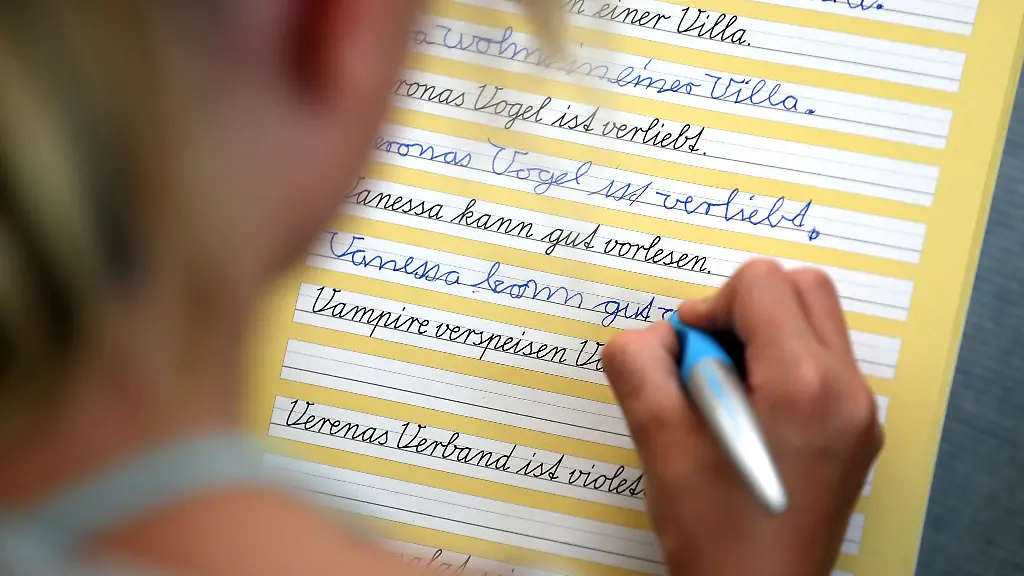 einer Villa.
in einer Villa.
Vogel ist verliebt.
Vogel ist verliebt.
anessa kann gut vorlesen.
Vanessa kann gut
Vampire verspeisen
Verenas Verband ist violett.